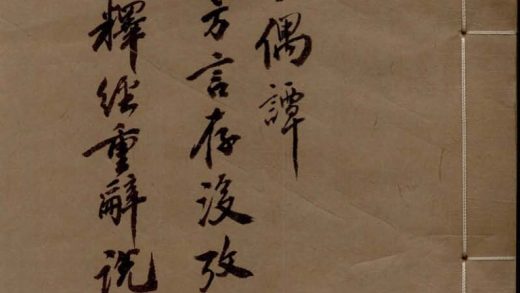 偶譚
方言存沒攷
釋經重辭說